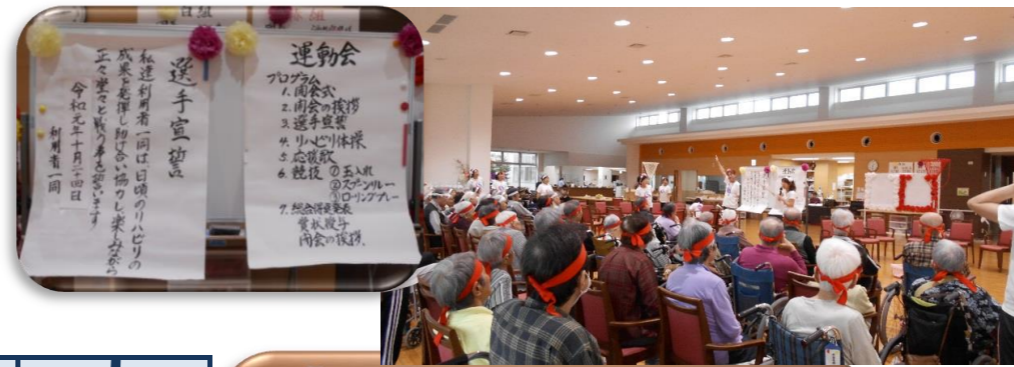 選手宣誓
私達利用者一同は日頃のリハビリの
成果を発揮し助け合い協力し楽しみながら
正々堂々と戦う事を誓います
令和元年十月二十四日
利用者一同
運動会
プログラム
1. 開会式
2. 開会の挨拶
3. 選手宣誓
4. リハビリ体操
5. 応援歌
6. 競技 ①玉入れ
②スプーンリレー
③ローリングリレー
7. 総合得点発表
賞状授与
閉会の挨拶